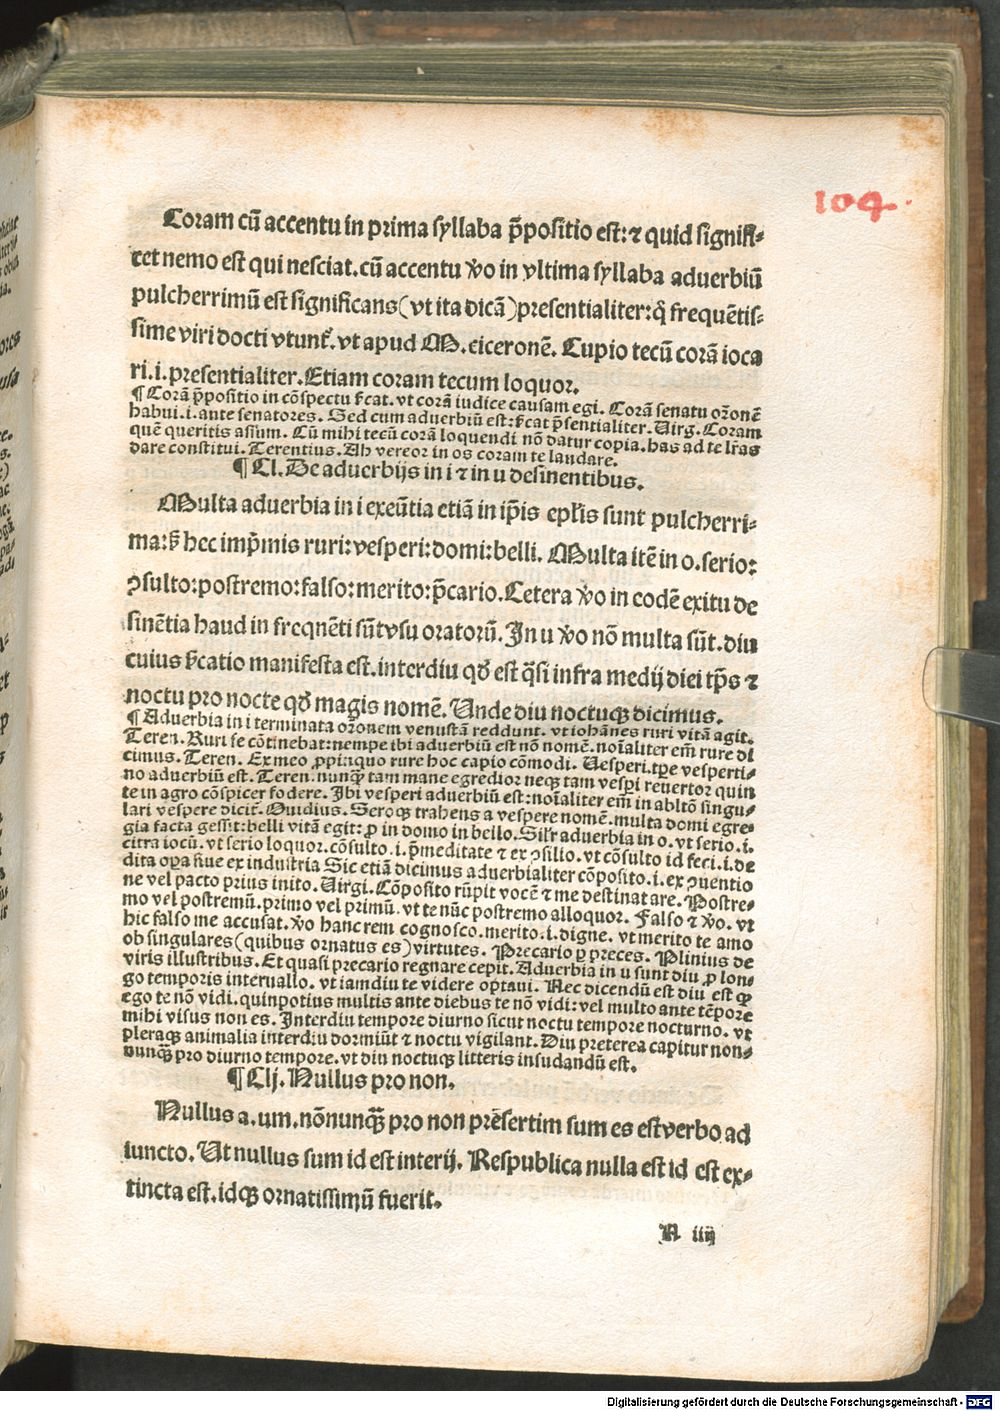 104.
Coram cū accentu in prima syllaba p̄positio est: ⁊ quid signifi-
cet nemo est qui nesciat. cū accentu v̄o in vltima syllaba aduerbiū
pulcherrimū est significans (vt ita dicā) presentialiter: q̄ frequētis-
sime viri docti vtunt᷑. vt apud M. ciceronē. Cupio tecū corā ioca
ri. i. presentialiter. Etiam coram tecum loquor.
¶ Corā p̄positio in cōspectu ſ̄cat. vt corā iudice causam egi. Corā senatu or̄onē
habui. i. ante senatores. Sed cum aduerbiū est: ſ̄cat p̄sentialiter. Uirg. Coram
quē queritis assum. Cū mihi tecū corā loquendi nō datur copia. has ad te lr̄as
dare constitui. Terentius. Ah vereor in os coram te laudare.
¶ Cl. De aduerbijs in i ⁊ in u desinentibus.
Multa aduerbia in i exeūtia etiā in ip̄is ep̄lis sunt pulcherri-
ma: ſꝫ hec imp̄mis ruri: vesperi: domi: belli. Multa itē in o. serio:
ꝯsulto: postremo: falso: merito: p̄cario. Cetera v̄o in codē exitu de
sinētia haud in freqnēti sūt vsu oratorū. In u v̄o nō multa sūt. diu
cuius ſ̄catio manifesta est. interdiu qd̄ est q̄si infra medij diei tp̄s ⁊
noctu pro nocte qd̄ magis nomē. Unde diu noctuqꝫ dicimus.
¶ Aduerbia in i terminata or̄onem venustā reddunt. vt iohānes ruri vitā agit.
Teren. Ruri se cōtinebat: nempe ibi aduerbiū est nō nomē. noīaliter em̄ rure di
cimus. Teren. Ex meo ꝓpinquo rure hoc capio cōmodi. Uesperi. tp̄e vesperti-
no aduerbiū est. Teren. nunqꝫ tam mane egredior neqꝫ tam vesp̱i reuertor quin
te in agro cōspicer fodere. Ibi vesperi aduerbiū est: noīaliter em̄ in abltō singu-
lari vespere dicit᷑. Ouidius. Seroqꝫ trahens a vespere nomē. multa domi egre-
gia facta gessit: belli vitā egit: ꝓ in domo in bello. Silr̄ aduerbia in o. vt serio. i.
citra iocū. vt serio loquor. cōsulto. i. p̄meditate ⁊ ex ꝯsilio. vt cōsulto id feci. i. de
dita oꝑa siue ex industria Sic etiā dicimus aduerbialiter cōposito. i. ex ꝯuentio
ne vel pacto prius inito. Uirgi. Cōposito rūpit vocē ⁊ me destinat are. Postre-
mo vel postremū. primo vel primū. vt te nūc postremo alloquor. Falso ⁊ v̄o. vt
hic falso me accusat. v̄o hanc rem cognosco. merito. i. digne. vt merito te amo
ob singulares (quibus ornatus es) virtutes. Precario ꝑ preces. Plinius de
viris illustribus. Et quasi precario regnare cepit. Aduerbia in u sunt diu ꝓ lon-
go temporis interuallo. vt iamdiu te videre optaui. Nec dicendū est diu est qꝫ
ego te nō vidi. quinpotius multis ante diebus te nō vidi: vel multo ante tēpore
mihi visus non es. Interdiu tempore diurno sicut noctu tempore nocturno. vt
pleraqꝫ animalia interdiu dormiūt ⁊ noctu vigilant. Diu preterea capitur non-
nunqꝫ pro diurno tempore. vt diu noctuqꝫ litteris insudandū est.
¶ Clj. Nullus pro non.
Nullus a. um. nōnunqꝫ pro non prēsertim sum es est verbo ad
iuncto. Ut nullus sum id est interij. Respublica nulla est id est ex-
tincta est. idqꝫ ornatissimū fuerit.
N iiij
Digitalisierung gefördert durch die Deutsche Forschungsgemeinschaft - DFG